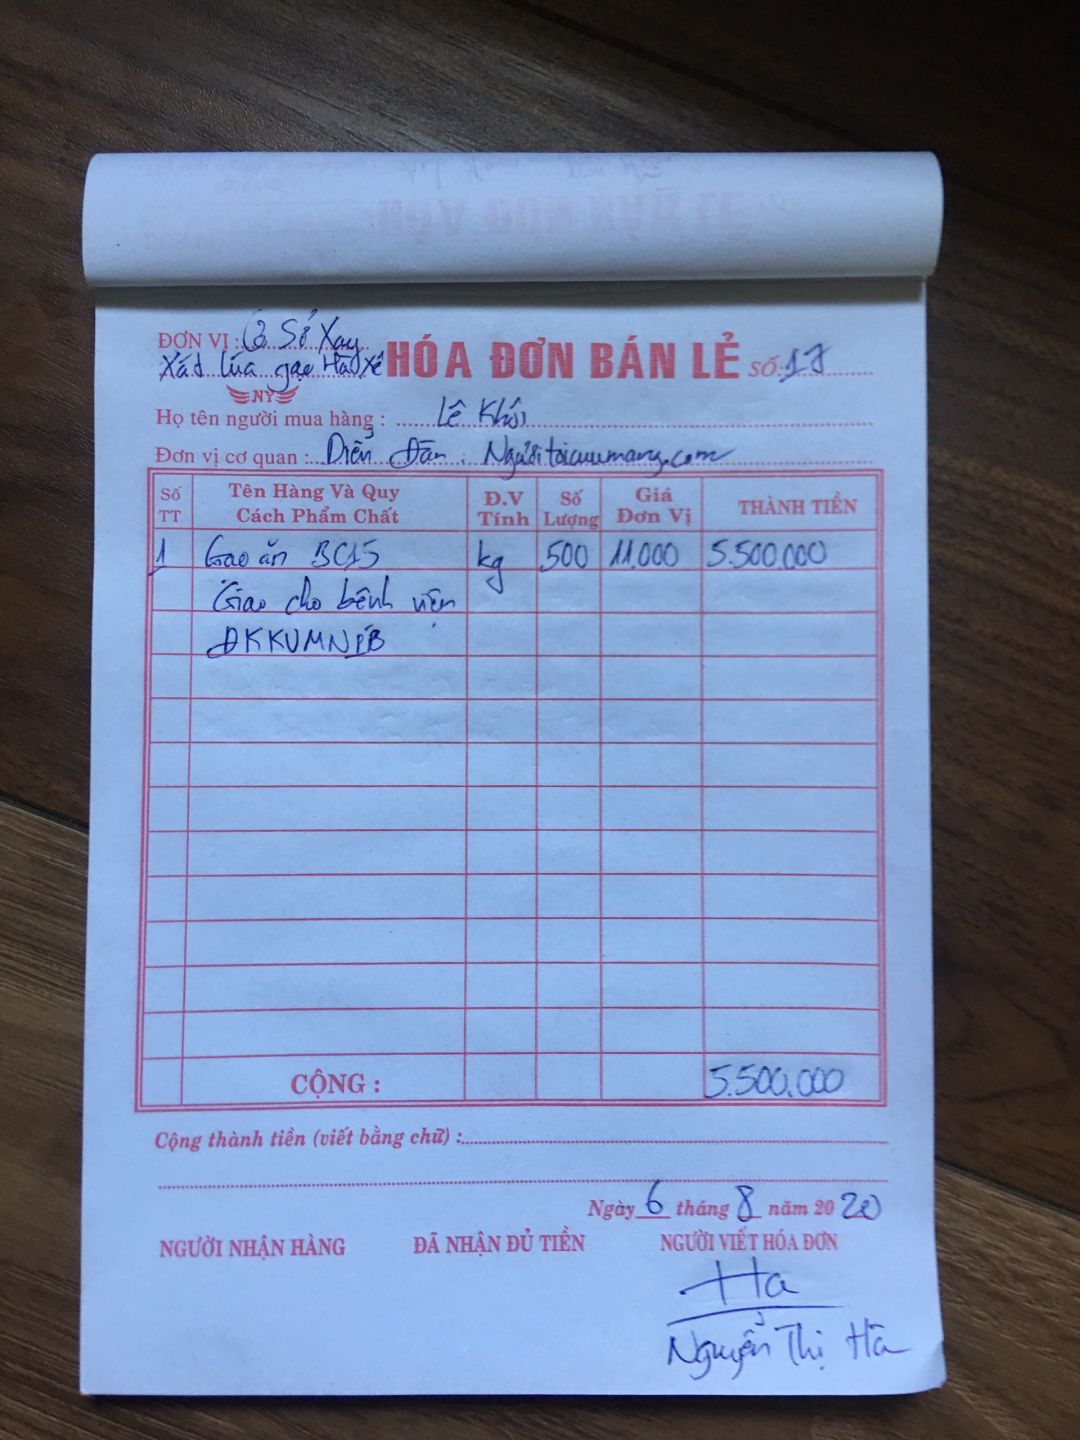 ĐƠN VỊ : Cơ Sở Xay
Xát lúa gạo Hà Xế
HÓA ĐƠN BÁN LẺ Số: 17
NY
Họ tên người mua hàng : Lê Khôi
Đơn vị cơ quan : Diễn Đàn : Nguoitoicuumang.com
Số TT Tên Hàng Và Quy Cách Phẩm Chất Đ.V Tính Số Lượng Giá Đơn Vị THÀNH TIỀN
1 Gạo ăn BC15 kg 500 11.000 5.500.000
Giao cho bệnh viện
ĐKKVMNPB
CỘNG : 5.500.000
Cộng thành tiền (viết bằng chữ) :
Ngày 6 tháng 8 năm 2020
NGƯỜI NHẬN HÀNG ĐÃ NHẬN ĐỦ TIỀN NGƯỜI VIẾT HÓA ĐƠN
Ha
Nguyễn Thị Hà